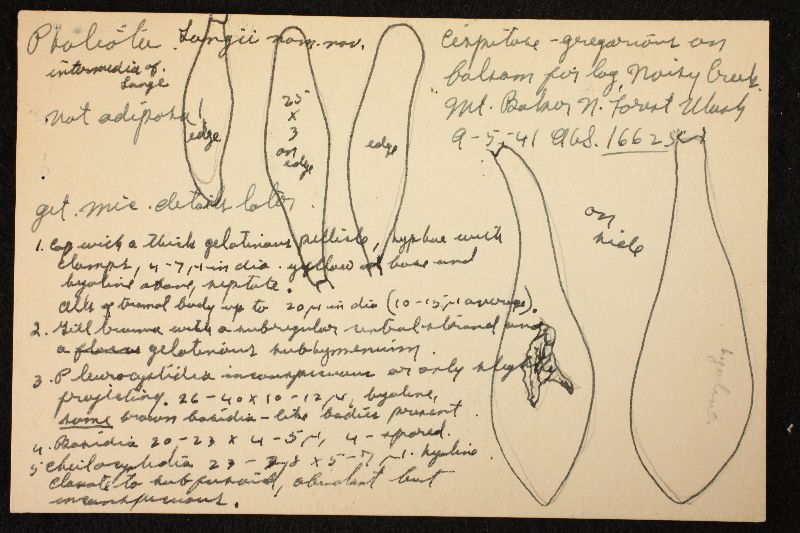 Pholiota Langii nom. nov.
intermedia of
Lange
not adiposa!
edge
25
x
3
on
edge
edge
Cespitose - gregarious on
balsam fir log, Noisy Creek
Mt. Baker N. Forest Wash
9-5-41 AHS. 16625
on
side
hyaline.
get mic. details later
1. Cap with a thick gelatinous pellicle, hyphae with
clamps, 4-7 µ in dia. yellow at base and
hyaline above, septate.
Cells of tramal body up to 20 µ in dia (10-15 µ average).
2. Gill trama with a subregular central strand and
a gelatinous subhymenium.
3. Pleurocystidia inconspicuous or only slightly
projecting. 26-40 x 10-12 µ, hyaline,
some brown basidia-like bodies present.
4. Basidia 20-23 x 4-5 µ, 4-spored.
5. Cheilocystidia 23- x 5-7 µ. hyaline
clavate to subfusoid, abundant but
inconspicuous.